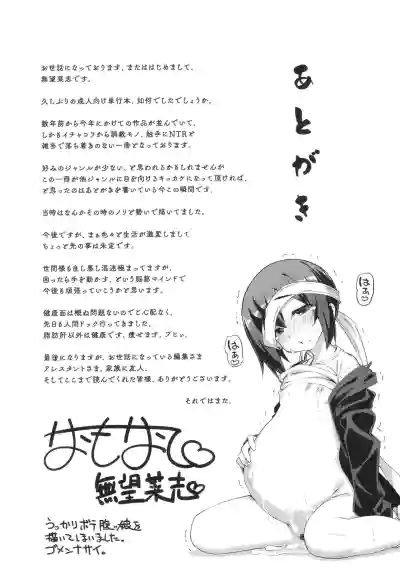 あとがき
お世話になっております、またははじめまして、
無望菜志です。
久しぶりの成人向け単行本、如何でしたでしょうか。
数年前から今年にかけての作品が並んでいて、
しかもイチャコラから調教モノ、触手にNTRと
雑多で落ち着きのない一冊となっております。
好みのジャンルが少ない、と思われるかもしれませんが
この一冊が他ジャンルに目を向けるキッカケになって頂ければ、
と思ったのはあとがきを書いている今この瞬間です。
当時はなんかその時のノリと勢いで描いてました。
今後ですが、まぁ色々と生活が激変しまして
ちょっと先の事は未定です。
世間様も良し悪し混迷極まってますが、
困ったら手を動かす、という脳筋マインドで
今後も頑張っていこうかと思います。
健康面は概ね問題ないのでご心配なく、
先日も人間ドック行ってきました。
脂肪肝以外は健康です、痩せます、ブヒィ。
最後になりますが、お世話になっている編集さま
アシスタントさま、家族に友人、
そしてここまで読んでくれた皆様、ありがとうございます。
それではまた。
はあ♡
はあ♡
無望菜志
うっかりボテ腹っ娘を
描いてしまいました。
ゴメンナサイ。